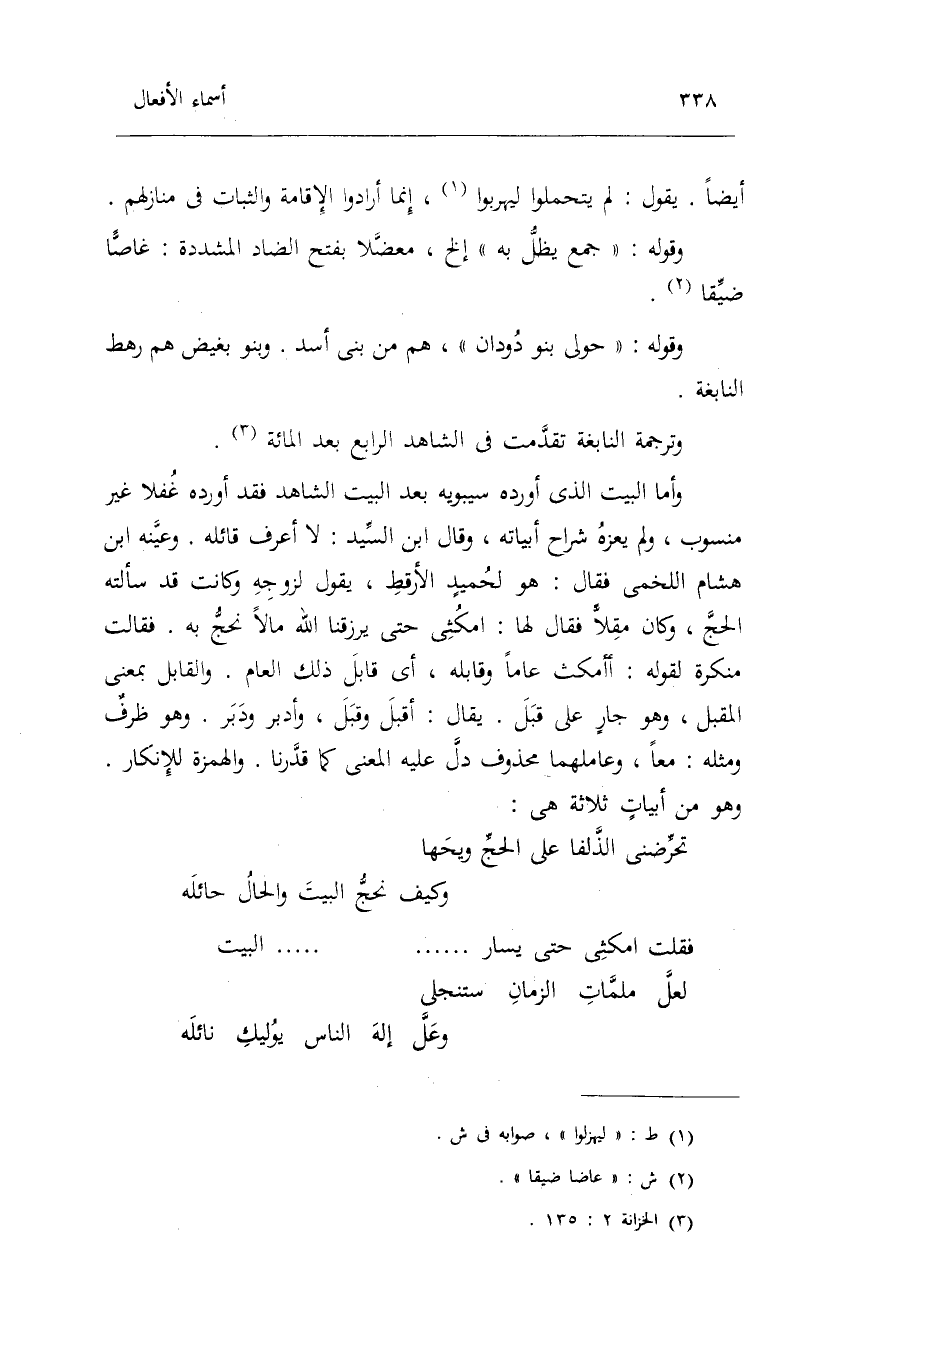 ٣٣٨ أسماء الأفعال
أيضاً . يقول : لم يتحملوا ليهربوا (١) ، إنما أرادوا الإقامة والثبات فى منازلهم .
وقوله : « جمع يظلُّ به » إلخ ، معضَّلا بفتح الضاد المشددة : غاصًّا
ضيِّقا (٢) .
وقوله : « حولى بنو دُودان » ، هم من بنى أسد . وبنو بغيض هم رهط
النابغة .
وترجمة النابغة تقدَّمت فى الشاهد الرابع بعد المائة (٣) .
وأما البيت الذى أورده سيبويه بعد البيت الشاهد فقد أورده غُفلا غير
منسوب ، ولم يعزهُ شراح أبياته ، وقال ابن السِّيد : لا أعرف قائله . وعيَّنه ابن
هشام اللخمى فقال : هو لحُميدٍ الأرقطِ ، يقول لزوجِهِ وكانت قد سألته
الحجَّ ، وكان مقِلاًّ فقال لها : امكُثِى حتى يرزقنا الله مالاً نحجُّ به . فقالت
منكرة لقوله : أأمكث عاماً وقابله ، أى قابلَ ذلك العام . والقابل بمعنى
المقبل ، وهو جارٍ على قبَلَ . يقال : أقبلَ وقبَلَ ، وأدبر ودَبَر . وهو ظرفٌ
ومثله : معاً ، وعاملهما محذوف دلَّ عليه المعنى كما قدَّرنا . والهمزة للإنكار .
وهو من أبياتٍ ثلاثة هى :
تحرِّضنى الذَّلفا على الحجِّ ويحَها
وكيف نحجُّ البيتَ والحالُ حائلَه
فقلت امكثِى حتى يسار ...... ..... البيت
لعلَّ ملمَّاتِ الزمانِ ستنجلى
وعَلَّ إلهَ الناس يوُليكِ نائلَه
(١) ط : « ليهزلوا » ، صوابه فى ش .
(٢) ش : « عاضا ضيقا » .
(٣) الخزانة ٢ : ١٣٥ .